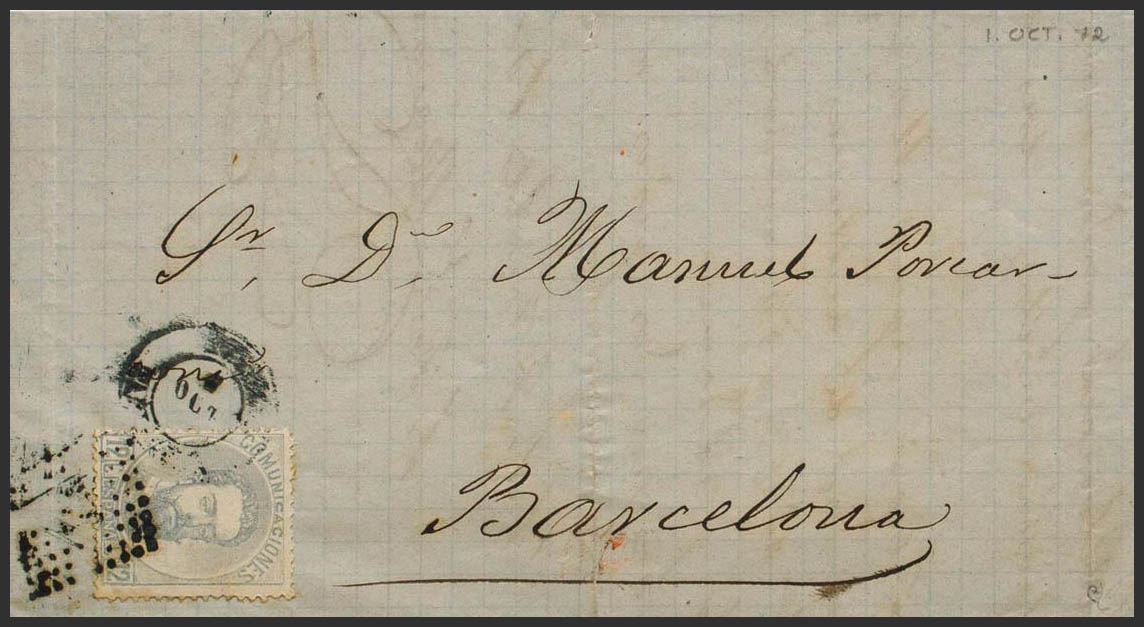 1. OCT. 72
Sr. Dn. Manuel
Barcelona
OCT
COMUNICACIONES
12